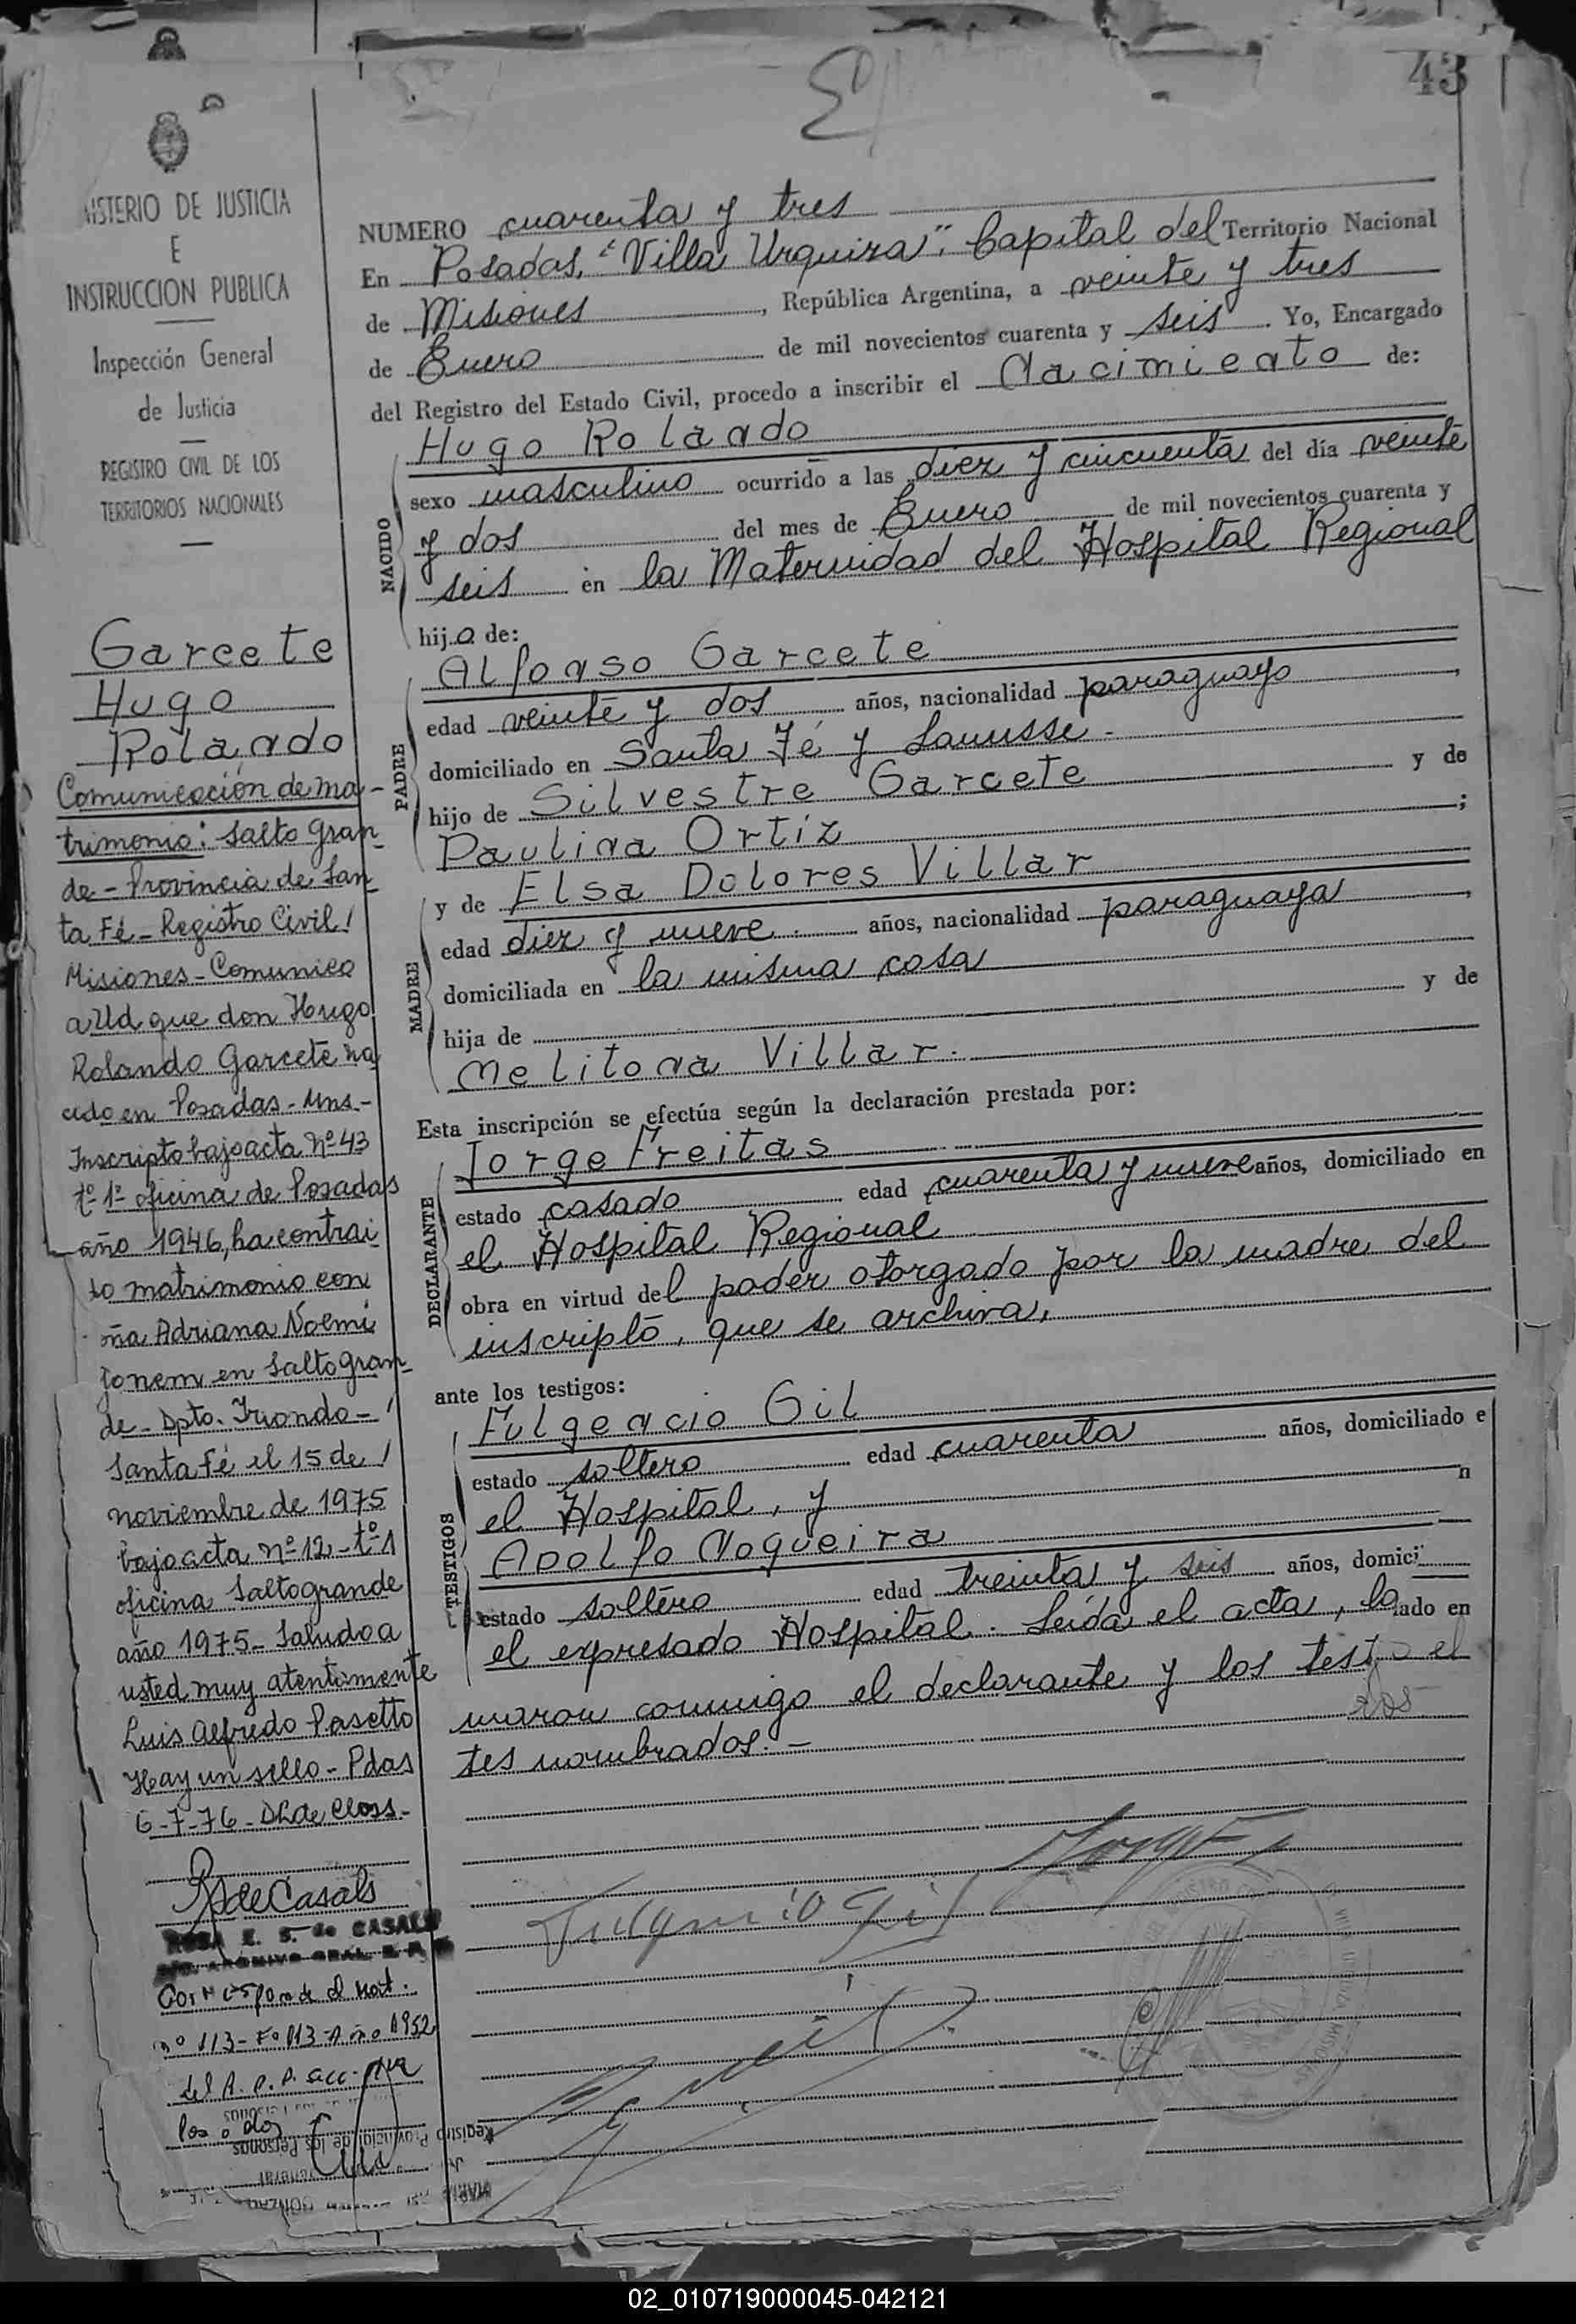 43
MINISTERIO DE JUSTICIA
E
INSTRUCCION PUBLICA
Inspección General
de Justicia
REGISTRO CIVIL DE LOS
TERRITORIOS NACIONALES
Garcete
Hugo
Rolando
Comunicación de ma-
trimonio: Salto Gran-
de - Provincia de San-
ta Fé - Registro Civil /
Misiones - Comunico
a Ud que don Hugo
Rolando Garcete na
cido en Posadas - Mns -
Inscripto bajo acta Nº 43
tº 1º oficina de Posadas
año 1946, ha contrai
do matrimonio con
oña Adriana Noemi
en Salto Gran-
de - Dpto. Iriondo - /
Santa Fé el 15 de /
noviembre de 1975
bajo acta nº 12 - tº 1
oficina Salto grande
año 1975 - Saludo a
usted muy atentamente
Luis Alfredo Pasetto
Hay un sello - Pdas
6-7-76 - de Closs -
de Casals
ROSA E. S. de CASALS
Corresponde al Mat.
nº 113 - Fº 113 - Año 1952
del
NUMERO cuarenta y tres
En Posadas, "Villa Urquiza". Capital del Territorio Nacional
de Misiones, República Argentina, a veinte y tres
de Enero de mil novecientos cuarenta y seis. Yo, Encargado
del Registro del Estado Civil, procedo a inscribir el Nacimiento de:
NACIDO
Hugo Rolando
sexo masculino ocurrido a las diez y cincuenta del día veinte
y dos del mes de Enero de mil novecientos cuarenta y
seis en la Maternidad del Hospital Regional
hijo de:
PADRE
Alfonso Garcete
edad veinte y dos años, nacionalidad paraguayo,
domiciliado en Santa Fé y Lanusse -
hijo de Silvestre Garcete y de
Paulina Ortiz;
MADRE
y de Elsa Dolores Villar
edad diez y nueve. años, nacionalidad paraguaya,
domiciliada en la misma casa
hija de y de
Melitona Villar.
Esta inscripción se efectúa según la declaración prestada por:
DECLARANTE
Jorge Freitas
estado casado edad cuarenta y nueve años, domiciliado en
el Hospital Regional
obra en virtud del poder otorgado por la madre del
inscripto, que se archiva,
ante los testigos:
TESTIGOS
Fulgencio Gil
estado soltero edad cuarenta años, domiciliado e
n
el Hospital, y
Adolfo Nogueira
estado soltero edad treinta y seis años, domici
liado en
el expresado Hospital. Leída el acta, la
maron conmigo el declarante y los test
tes nombrados. -
Fulgencio Gil
Registro Provincial de las Personas
02_010719000045-042121